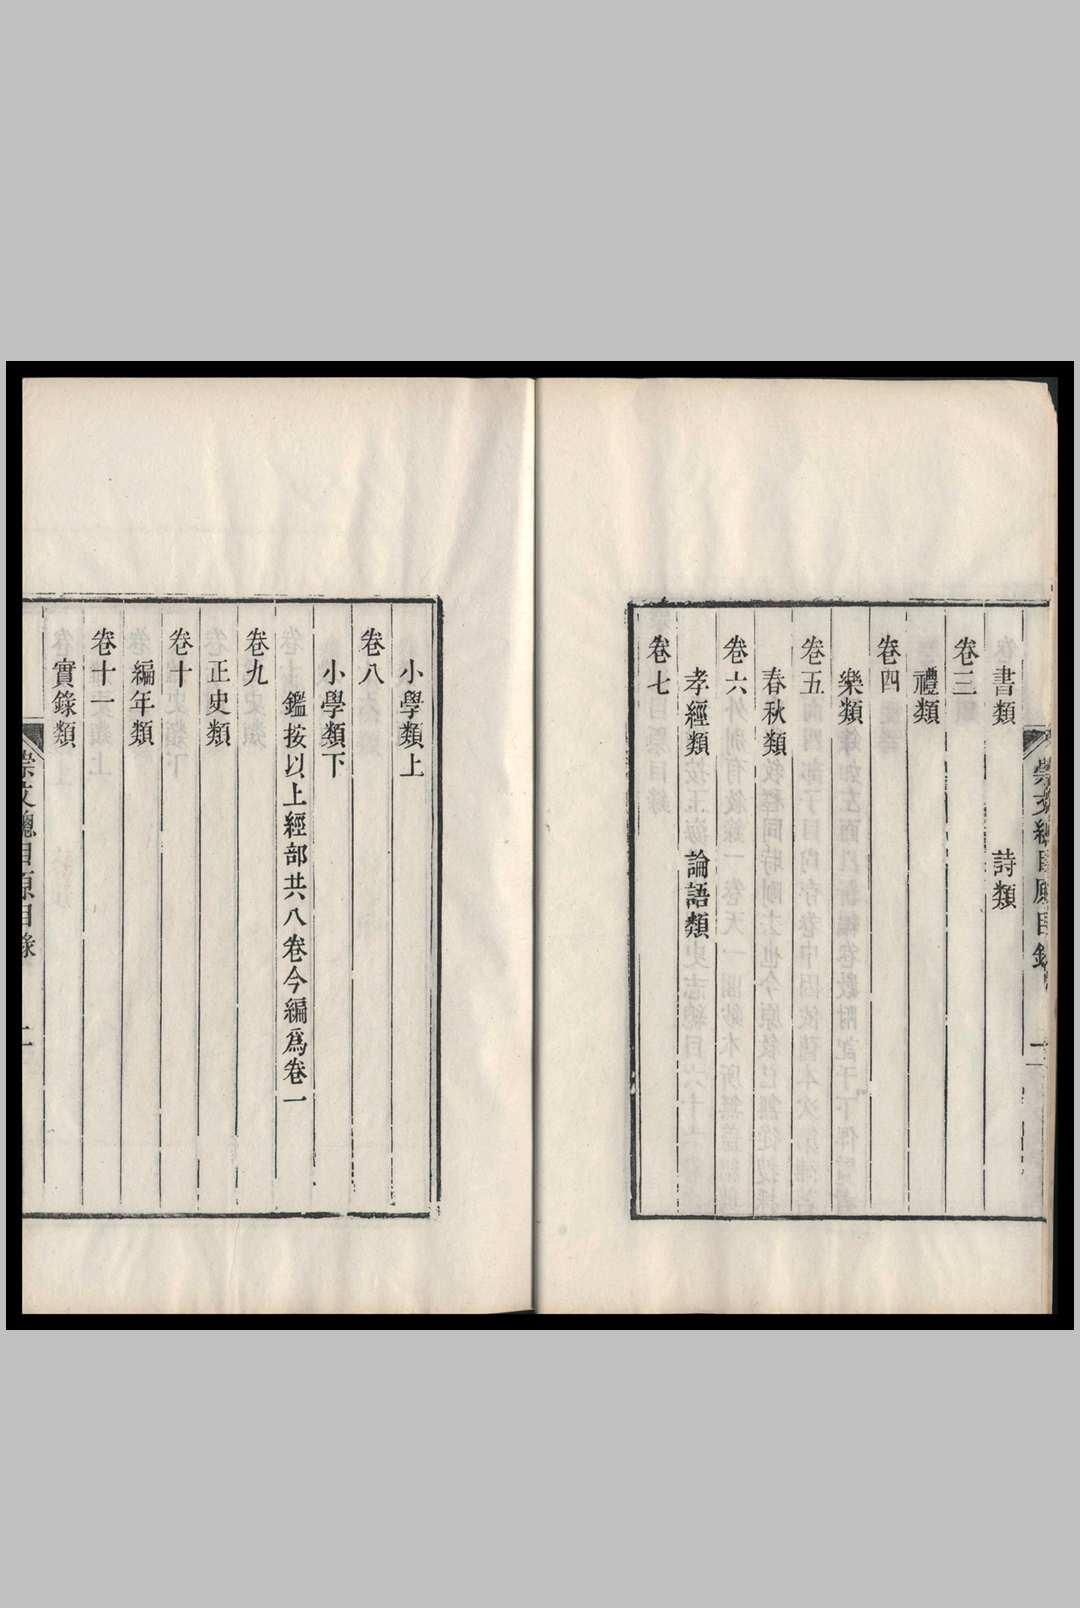 崇文總目原目錄
書類　詩類
卷三
禮類
卷四
樂類
卷五
春秋類
卷六
孝經類　論語類
卷七
小學類上
卷八
小學類下
鑑按以上經部共八卷今編爲卷一
卷九
正史類
卷十
編年類
卷十一
實錄類
崇文總目原目錄　二